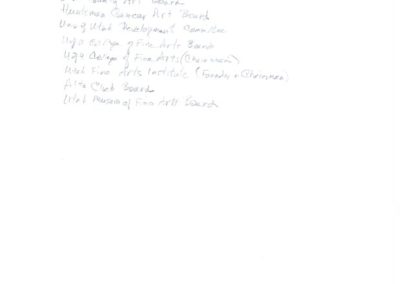 Art Board
Huntsman Cancer Art Board
Univ of Utah Development Committee
U of U College of Fine Arts Board
U of U College of Fine Arts (Chairman)
Utah Fine Arts Institute (Founder & Chairman)
Alta Club Board
Utah Museum of Fine Arts Board